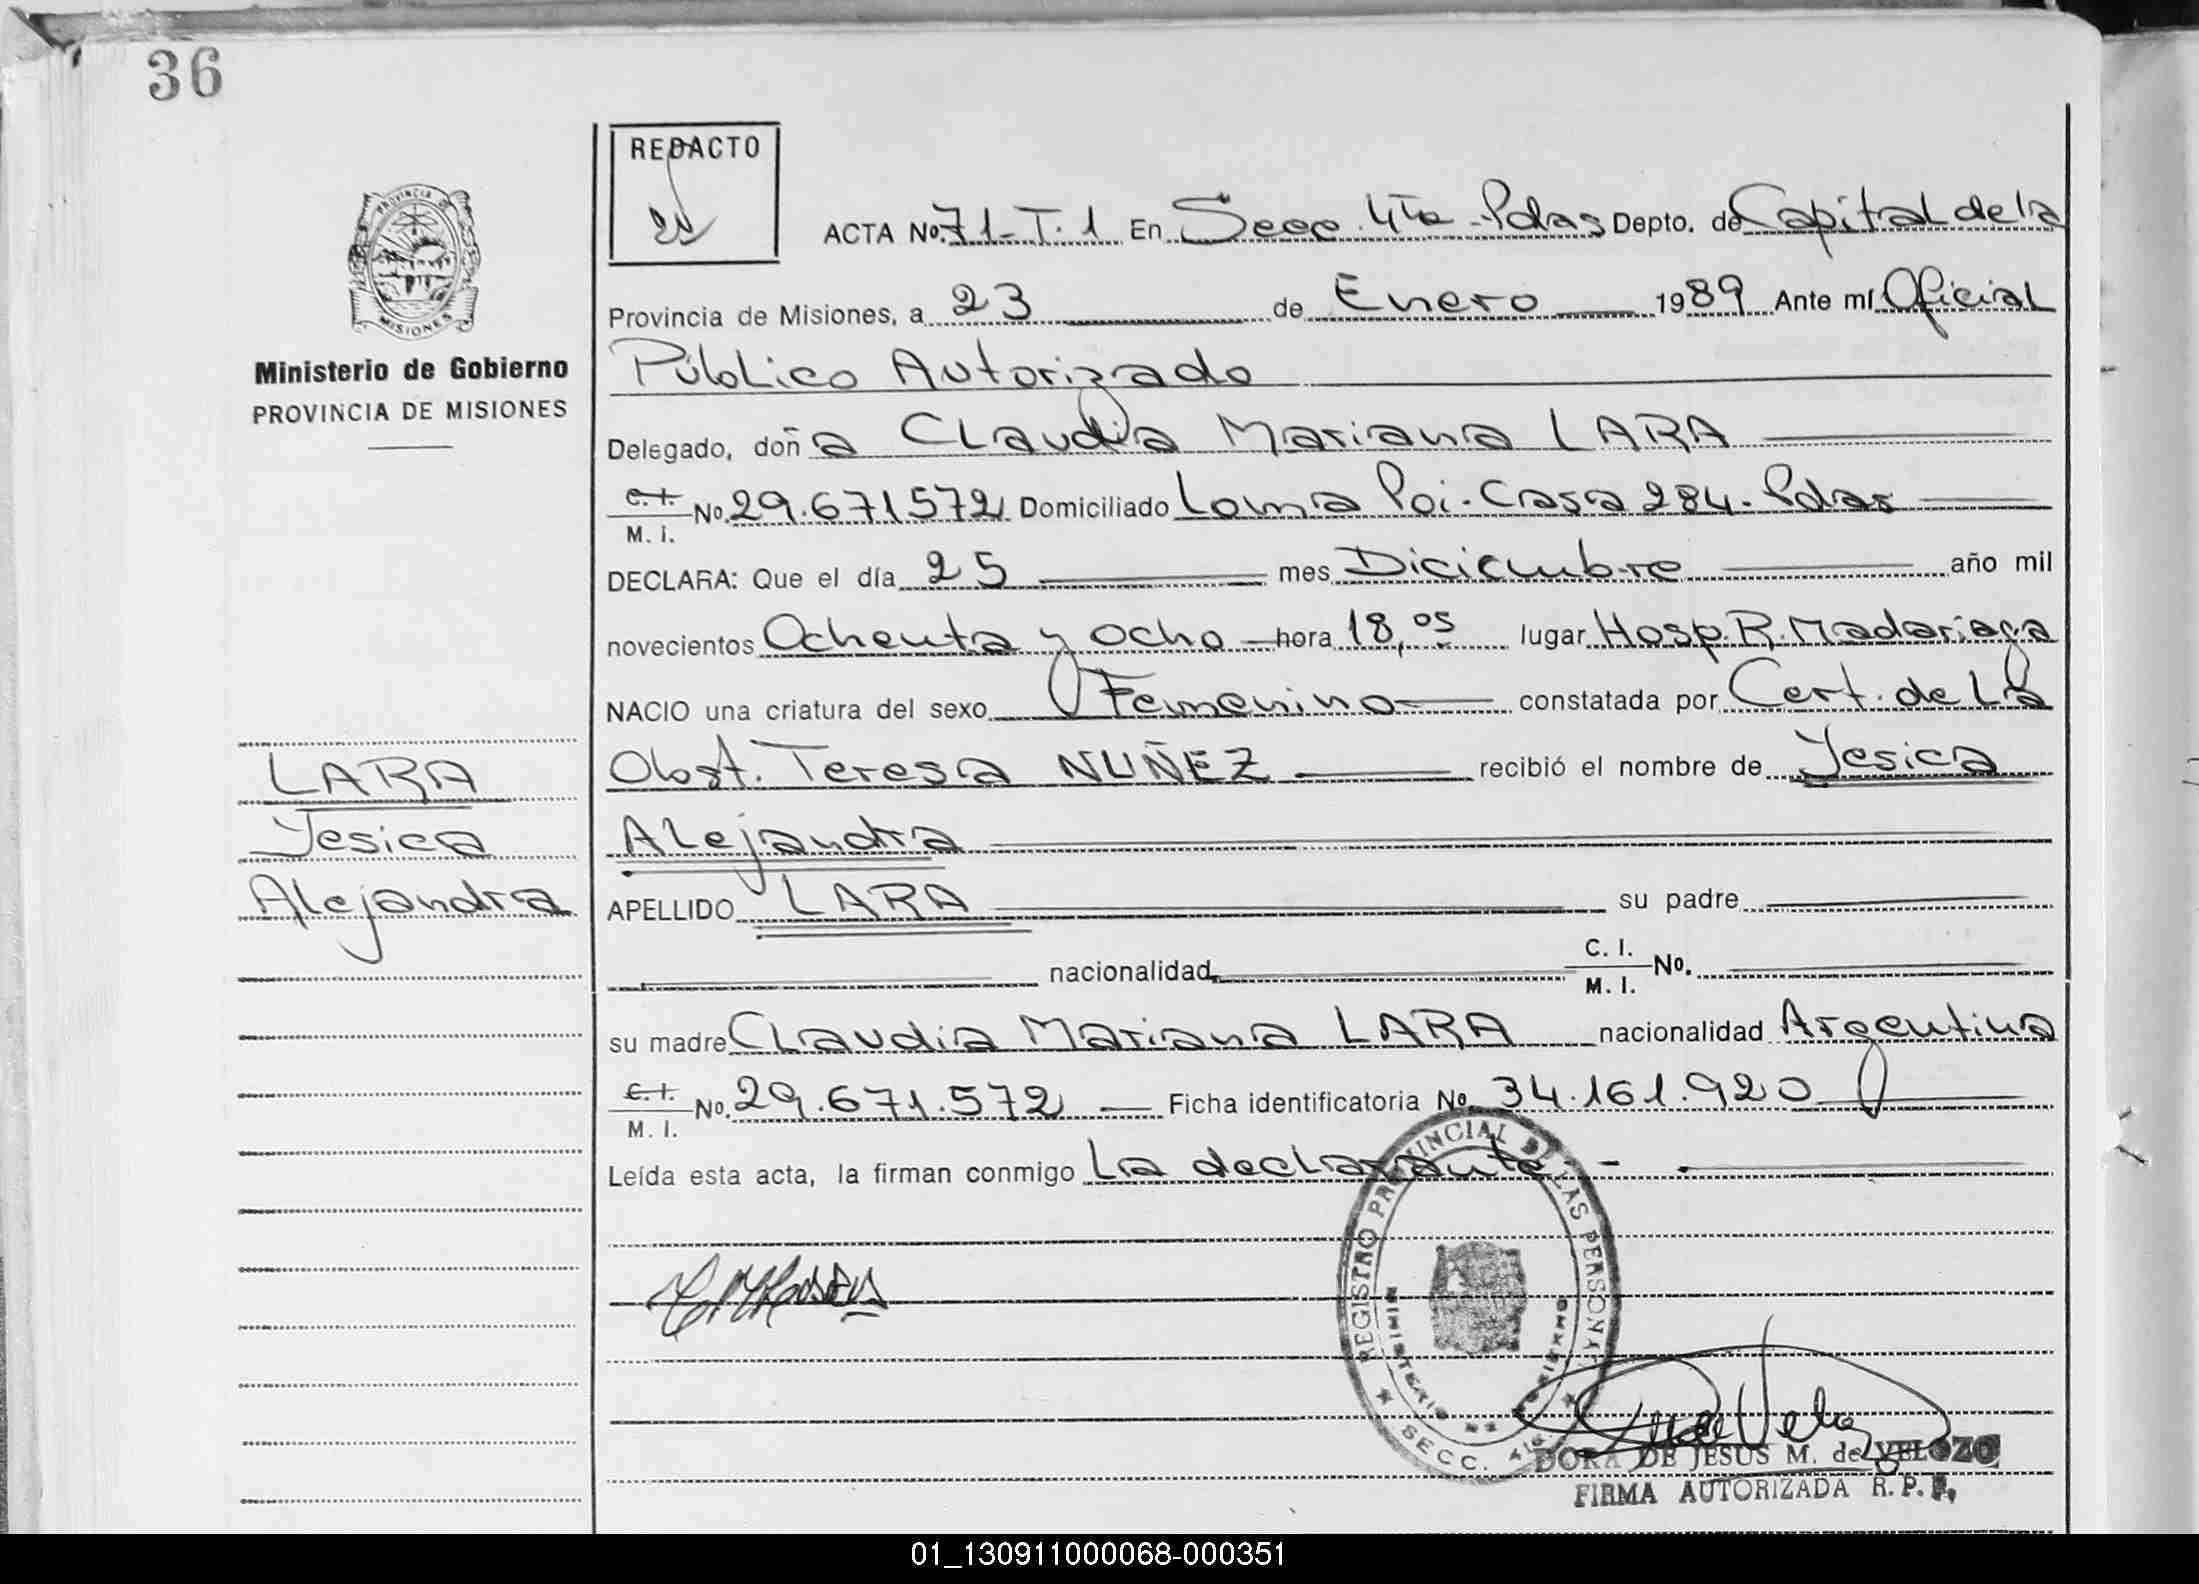 36
REDACTO
PROVINCIA DE
MISIONES
Ministerio de Gobierno
PROVINCIA DE MISIONES
ACTA No. 71-T.1 En Secc. 4ta - Pdas Depto. de Capital de la
Provincia de Misiones, a 23 de Enero 1989 Ante mí Oficial
Público Autorizado
Delegado, doña Claudia Mariana LARA
C.I. M. I. No. 29.671572 Domiciliado Loma Poi - Casa 284 - Pdas
DECLARA: Que el día 25 mes Diciembre año mil
novecientos Ochenta y ocho hora 18,05 lugar Hosp. R. Madariaga
NACIO una criatura del sexo Femenino constatada por Cert. de La
Obst. Teresa NUÑEZ recibió el nombre de Yesica
Alejandra
APELLIDO LARA su padre
nacionalidad C. I. M. I. No.
su madre Claudia Mariana LARA nacionalidad Argentina
C.I. M. I. No. 29.671.572 Ficha identificatoria No. 34.161.920
Leída esta acta, la firman conmigo La declarante -
LARA
Yesica
Alejandra
REGISTRO PROVINCIAL DE LAS PERSONAS
MINISTERIO DE GOBIERNO
SECC. 4ta.
DORA DE JESUS M. de VELOZO
FIRMA AUTORIZADA R. P. P.
01_130911000068-000351